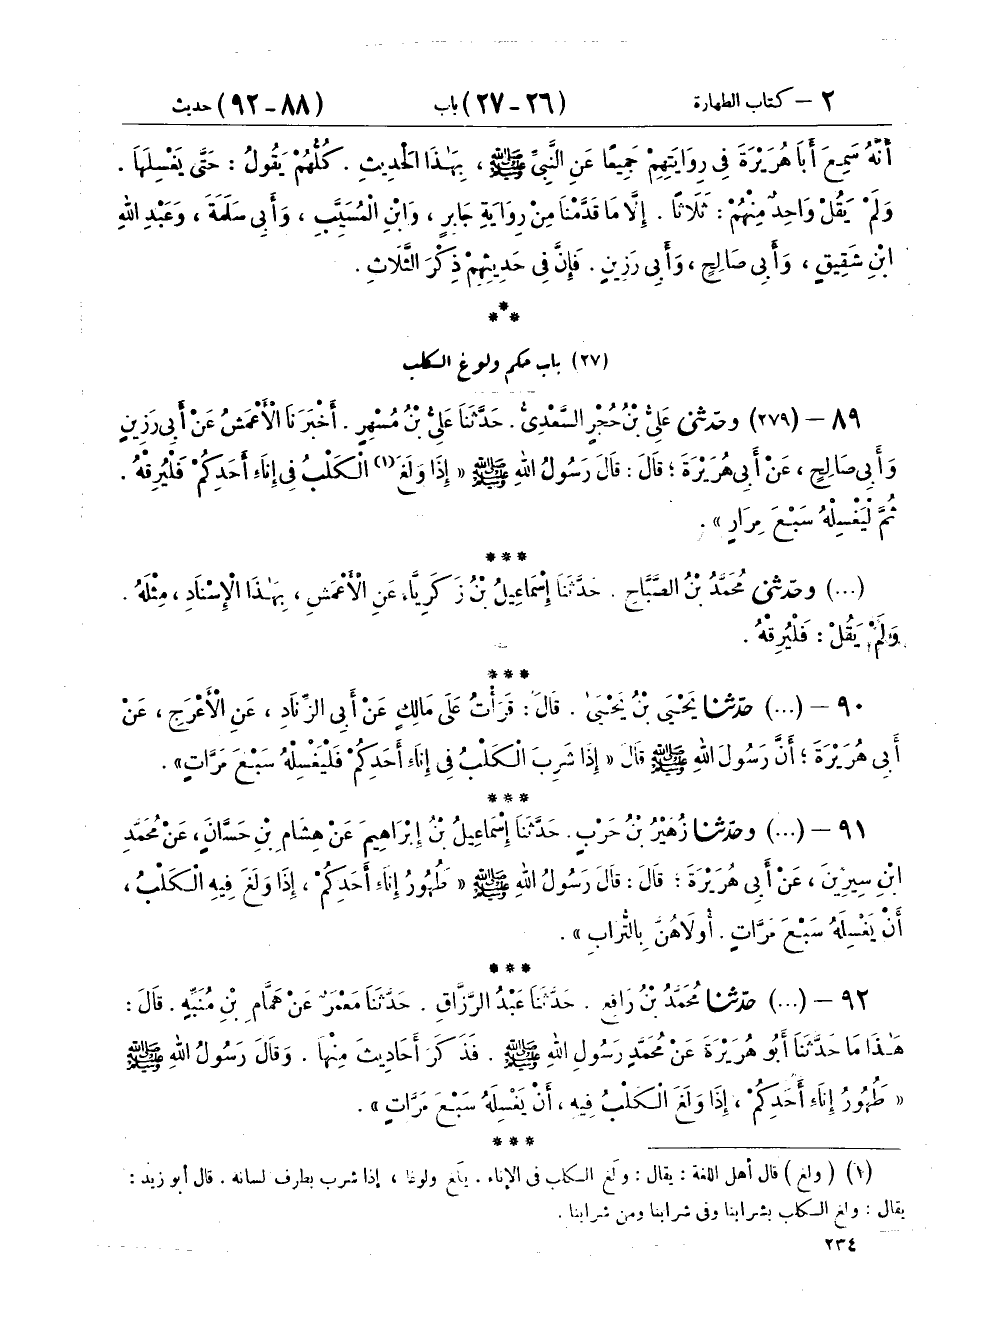 ٢ – كتاب الطهارة (٢٦-٢٧) باب (٨٨-٩٢) حديث
أَنَّهُ سَمِعَ أَبَا هُرَيْرَةَ فِى رِوَايَتِهِمْ جَمِيعًا عَنِ النَّبِىِّ ﷺ ، بِهَـٰذَا الْحَدِيثِ . كُلُّهُمْ يَقُولُ : حَتَّى يَغْسِلَهَا .
وَلَمْ يَقُلْ وَاحِدٌ مِنْهُمْ : ثَلَاثًا . إِلَّا مَا قَدَّمْنَا مِنْ رِوَايَةِ جَابِرٍ ، وَابْنِ الْمُسَيَّبِ ، وَأَبِى سَلَمَةَ ، وَعَبْدِ اللهِ
ابْنِ شَقِيقٍ ، وَأَبِى صَالِحٍ ، وَأَبِى رَزِينٍ . فَإِنَّ فِى حَدِيثِهِمْ ذِكْرَ الثَّلَاثِ .
***
(٢٧) باب حكم ولوغ الكلب
٨٩ – (٢٧٩) وحدثنى عَلِىُّ بْنُ حُجْرٍ السَّعْدِىُّ . حَدَّثَنَا عَلِىُّ بْنُ مُسْهِرٍ . أَخْبَرَنَا الْأَعْمَشُ عَنْ أَبِى رَزِينٍ
وَأَبِى صَالِحٍ ، عَنْ أَبِى هُرَيْرَةَ ؛ قَالَ : قَالَ رَسُولُ اللهِ ﷺ « إِذَا وَلَغَ (١) الْكَلْبُ فِى إِنَاءِ أَحَدِكُمْ فَلْيُرِقْهُ .
ثُمَّ لْيَغْسِلْهُ سَبْعَ مِرَارٍ » .
***
(...) وحدثنى مُحَمَّدُ بْنُ الصَّبَّاحِ . حَدَّثَنَا إِسْمَاعِيلُ بْنُ زَكَرِيَّاءَ عَنِ الْأَعْمَشِ ، بِهَـٰذَا الْإِسْنَادِ ، مِثْلَهُ .
وَلَمْ يَقُلْ : فَلْيُرِقْهُ .
***
٩٠ – (...) حدثنا يَحْيَىٰ بْنُ يَحْيَىٰ . قَالَ : قَرَأْتُ عَلَى مَالِكٍ عَنْ أَبِى الزِّنَادِ ، عَنِ الْأَعْرَجِ ، عَنْ
أَبِى هُرَيْرَةَ ؛ أَنَّ رَسُولَ اللهِ ﷺ قَالَ « إِذَا شَرِبَ الْكَلْبُ فِى إِنَاءِ أَحَدِكُمْ فَلْيَغْسِلْهُ سَبْعَ مَرَّاتٍ » .
***
٩١ – (...) وحدثنا زُهَيْرُ بْنُ حَرْبٍ . حَدَّثَنَا إِسْمَاعِيلُ بْنُ إِبْرَاهِيمَ عَنْ هِشَامِ بْنِ حَسَّانَ ، عَنْ مُحَمَّدِ
ابْنِ سِيرِينَ ، عَنْ أَبِى هُرَيْرَةَ ؛ قَالَ : قَالَ رَسُولُ اللهِ ﷺ « طَهُورُ إِنَاءِ أَحَدِكُمْ ، إِذَا وَلَغَ فِيهِ الْكَلْبُ ،
أَنْ يَغْسِلَهُ سَبْعَ مَرَّاتٍ . أُولَاهُنَّ بِالتُّرَابِ » .
***
٩٢ – (...) حدثنا مُحَمَّدُ بْنُ رَافِعٍ . حَدَّثَنَا عَبْدُ الرَّزَّاقِ . حَدَّثَنَا مَعْمَرٌ عَنْ هَمَّامِ بْنِ مُنَبِّهٍ . قَالَ :
هَـٰذَا مَا حَدَّثَنَا أَبُو هُرَيْرَةَ عَنْ مُحَمَّدٍ رَسُولِ اللهِ ﷺ . فَذَكَرَ أَحَادِيثَ مِنْهَا . وَقَالَ رَسُولُ اللهِ ﷺ
« طَهُورُ إِنَاءِ أَحَدِكُمْ ، إِذَا وَلَغَ الْكَلْبُ فِيهِ ، أَنْ يَغْسِلَهُ سَبْعَ مَرَّاتٍ » .
***
(١) ( ولغ ) قال أهل اللغة : يقال : ولغ الكلب فى الإناء . يلغ ولوغا ، إذا شرب بطرف لسانه . قال أبو زيد :
يقال : ولغ الكلب بشرابنا وفى شرابنا ومن شرابنا .
٢٣٤